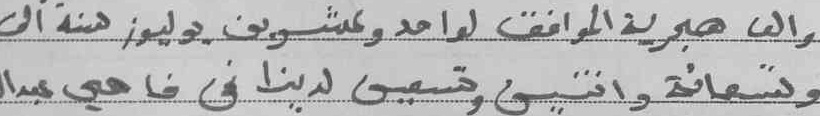 والف هجرية الموافق لواحد وعشرين يوليوز سنة الف
وتسعمائة واثنين وتسعين لدينا نحن قاضي عبدا